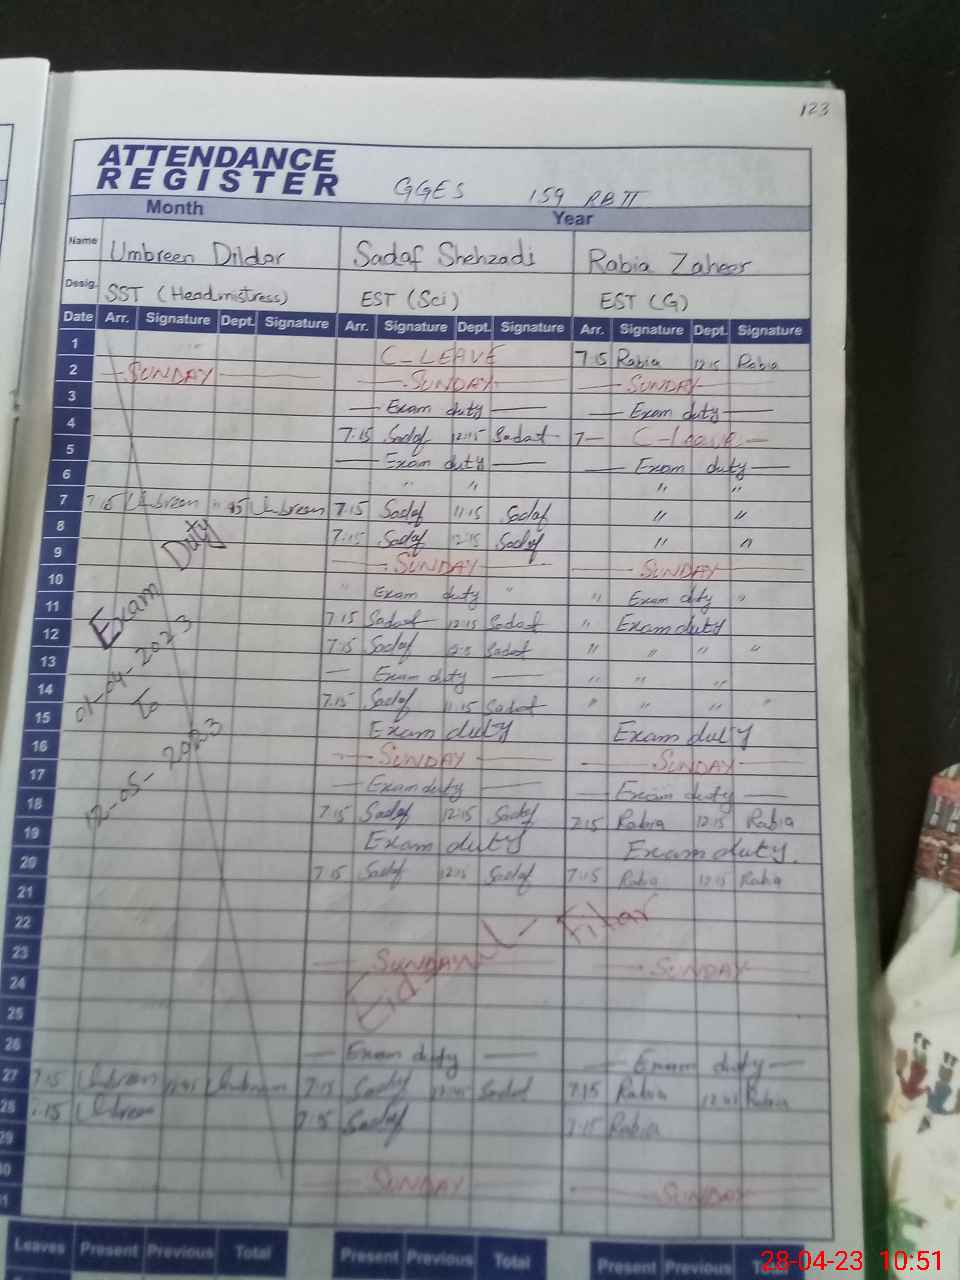 123
ATTENDANCE
REGISTER GGES 159 RB II
Month Year
Name Umbreen Dildar Sadaf Shehzadi Rabia Zaheer
Desig. SST (Headmistress) EST (Sci) EST (G)
Date Arr. Signature Dept. Signature Arr. Signature Dept. Signature Arr. Signature Dept. Signature
1 C-LEAVE 7:15 Rabia 12:15 Rabia
2 SUNDAY SUNDAY SUNDAY
3 Exam duty Exam duty
4 7:15 Sadaf 12:15 Sadaf 7 C-Leave
5 Exam duty Exam duty
6 " " " "
7 7:15 Umbreen Umbreen 7:15 Sadaf 11:15 Sadaf " "
8 7:15 Sadaf 12:15 Sadaf " "
9 SUNDAY SUNDAY
10 " Exam duty " " Exam duty "
11 7:15 Sadaf 12:15 Sadaf " Exam duty
12 7:15 Sadaf Sadaf " " " "
13 Exam duty " " "
14 7:15 Sadaf 11:15 Sadaf " " " "
15 Exam duty Exam duty
16 SUNDAY SUNDAY
17 Exam duty Exam duty
18 7:15 Sadaf 12:15 Sadaf 7:15 Rabia 12:15 Rabia
19 Exam duty Exam duty.
20 7:15 Sadaf 12:15 Sadaf 7:15 Rabia 12:15 Rabia
21
22
23 SUNDAY SUNDAY
24
25
26 Exam duty Exam duty
27 7:15 Umbreen Umbreen 7:15 Sadaf Sadaf 7:15 Rabia Rabia
28 7:15 Umbreen 7:15 Sadaf 7:15 Rabia
29
30 SUNDAY SUNDAY
31
Exam Duty
01-04-2023
To
12-05-2023
Eid-ul-Fitar
Leaves Present Previous Total Present Previous Total Present Previous Total
28-04-23 10:51